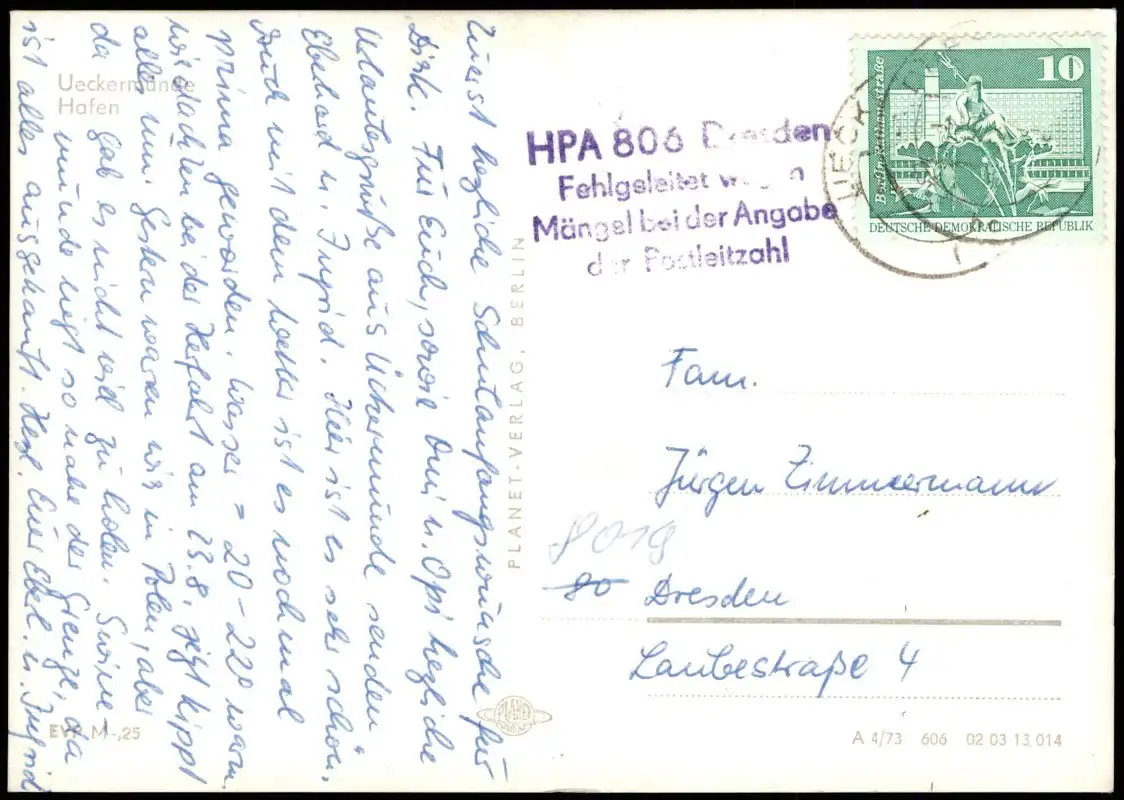 Ueckermünde
Hafen
Zuerst herzliche Schulanfangswünsche für
Dirk. Für Euch, sowie Omi u. Opi herzliche
Urlaubsgrüße aus Ückermünde senden
Eberhard u. Ingrid. Hier ist es sehr schön.
Auch mit dem Wetter ist es nochmal
prima geworden. Wasser = 20-22° warm.
wie dachten bei der Herfahrt am 23.8. jetzt kippt
alles um. Gestern waren wir in Polen, aber
da gab es nicht viel zu holen. Swine-
münde liegt so nahe der Grenze, da
ist alles ausgekauft. Herzl. Eure Eberh. u. Ingrid
EVP M -,25
PLANET-VERLAG, BERLIN
PLANET
HPA 806 Dresden
Fehlgeleitet wegen
Mängel bei der Angabe
der Postleitzahl
UECK
10
Berlin, Rathausstraße
DEUTSCHE DEMOKRATISCHE REPUBLIK
Fam.
Jürgen Zimmermann
8019
80 Dresden
Laubestraße 4
A 4/73 606 02 03 13 014